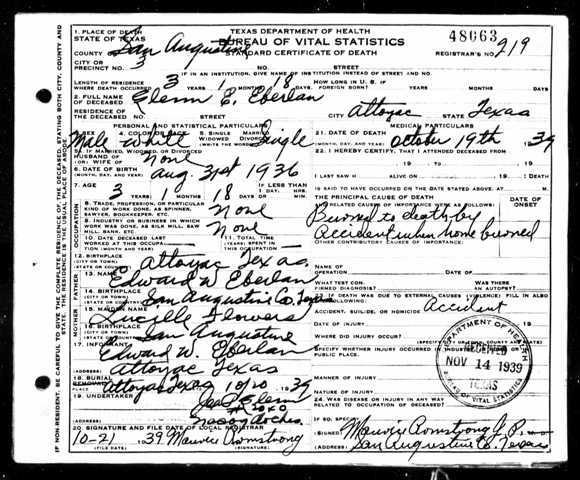 1. PLACE OF DEATH
STATE OF TEXAS
TEXAS DEPARTMENT OF HEALTH
BUREAU OF VITAL STATISTICS
STANDARD CERTIFICATE OF DEATH
48663
REGISTRAR'S NO. 219
COUNTY San Augustine
CITY OR
PRECINCT NO. 3
IF IN AN INSTITUTION, GIVE NAME OF INSTITUTION INSTEAD OF STREET AND NO.
LENGTH OF RESIDENCE
WHERE DEATH OCCURRED 3 YEARS 1 MONTHS 18 DAYS
HOW LONG IN U. S. IF
FOREIGN BORN? YEARS MONTHS DAYS
2. FULL NAME
OF DECEASED Glenn E. Eberlan
RESIDENCE OF
THE DECEASED
CITY Attoyac STATE Texas
PERSONAL AND STATISTICAL PARTICULARS
MEDICAL PARTICULARS
3. SEX Male
4. COLOR OR RACE white
5. SINGLE MARRIED WIDOWED DIVORCED Single
21. DATE OF DEATH
(MONTH, DAY, AND YEAR) October 19th 1939
5a. IF MARRIED, WIDOWED, OR DIVORCED
HUSBAND OF
(OR) WIFE OF None
22. I HEREBY CERTIFY, THAT I ATTENDED DECEASED FROM
6. DATE OF BIRTH
(MONTH, DAY, AND YEAR) Aug. 31st 1936
I LAST SAW H ALIVE ON 19
7. AGE 3 YEARS 1 MONTHS 18 DAYS
IF LESS THAN 1 DAY, HRS. MIN.
IS SAID TO HAVE OCCURRED ON THE DATE STATED ABOVE AT M.
8. TRADE, PROFESSION, OR PARTICULAR
KIND OF WORK DONE, AS SPINNER,
SAWYER, BOOKKEEPER, ETC. None
THE PRINCIPAL CAUSE OF DEATH
AND RELATED CAUSES OF IMPORTANCE WERE AS FOLLOWS:
DATE OF
ONSET
9. INDUSTRY OR BUSINESS IN WHICH
WORK WAS DONE, AS SILK MILL, SAW
MILL, BANK, ETC. None
Burned to death by
accident when home burned
OTHER CONTRIBUTORY CAUSES OF IMPORTANCE:
10. DATE DECEASED LAST
WORKED AT THIS
OCCUPATION
11. TOTAL TIME
(YEARS) SPENT IN
THIS OCCUPATION
12. BIRTHPLACE
(CITY OR TOWN)
(STATE OR COUNTRY) Attoyac Texas
NAME OF
OPERATION DATE OF
13. NAME Edward W Eberlan
WHAT TEST CONFIRMED DIAGNOSIS?
WAS THERE
AN AUTOPSY?
14. BIRTHPLACE
(CITY OR TOWN)
(STATE OR COUNTRY) San Augustine Co Texas
23. IF DEATH WAS DUE TO EXTERNAL CAUSES (VIOLENCE) FILL IN ALSO
FOLLOWING:
15. MAIDEN NAME Lucylle Flowers
ACCIDENT, SUICIDE, OR HOMICIDE Accident
DATE OF INJURY 19
16. BIRTHPLACE
(CITY OR TOWN)
(STATE OR COUNTRY) San Augustine
WHERE DID INJURY OCCUR?
17. INFORMANT Edward W. Eberlan
(ADDRESS) Attoyac Texas
SPECIFY WHETHER INJURY OCCURRED IN INDUSTRY, IN HOME, OR IN
PUBLIC PLACE.
MANNER OF
INJURY
18. BURIAL
REMOVAL
Attoyac Texas 10/20 1939
NATURE OF
INJURY
19. UNDERTAKER
(ADDRESS)
24. WAS DISEASE OR INJURY IN ANY WAY
RELATED TO OCCUPATION OF DECEASED?
IF SO, SPECIFY
20. SIGNATURE AND FILE DATE OF LOCAL REGISTRAR
10-21 1939 Maurie Armstrong
SIGNED Maurie Armstrong J. P.
(ADDRESS) San Augustine Co. Texas
DEPARTMENT OF HEALTH
RECEIVED
NOV 14 1939
TEXAS
BUREAU OF VITAL STATISTICS
OCCUPATION
FATHER
MOTHER